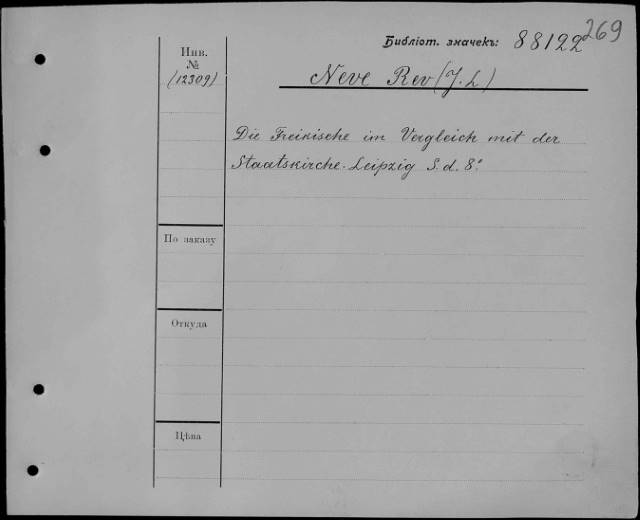 269
Библіот. значекъ: 88122
Инв.
№
(12309)
Neve Rev (J. L)
Die Freikische im Vergleich mit der
Staatskirche. Leipzig S. d. 8º.
По заказу
Откуда
Цѣна